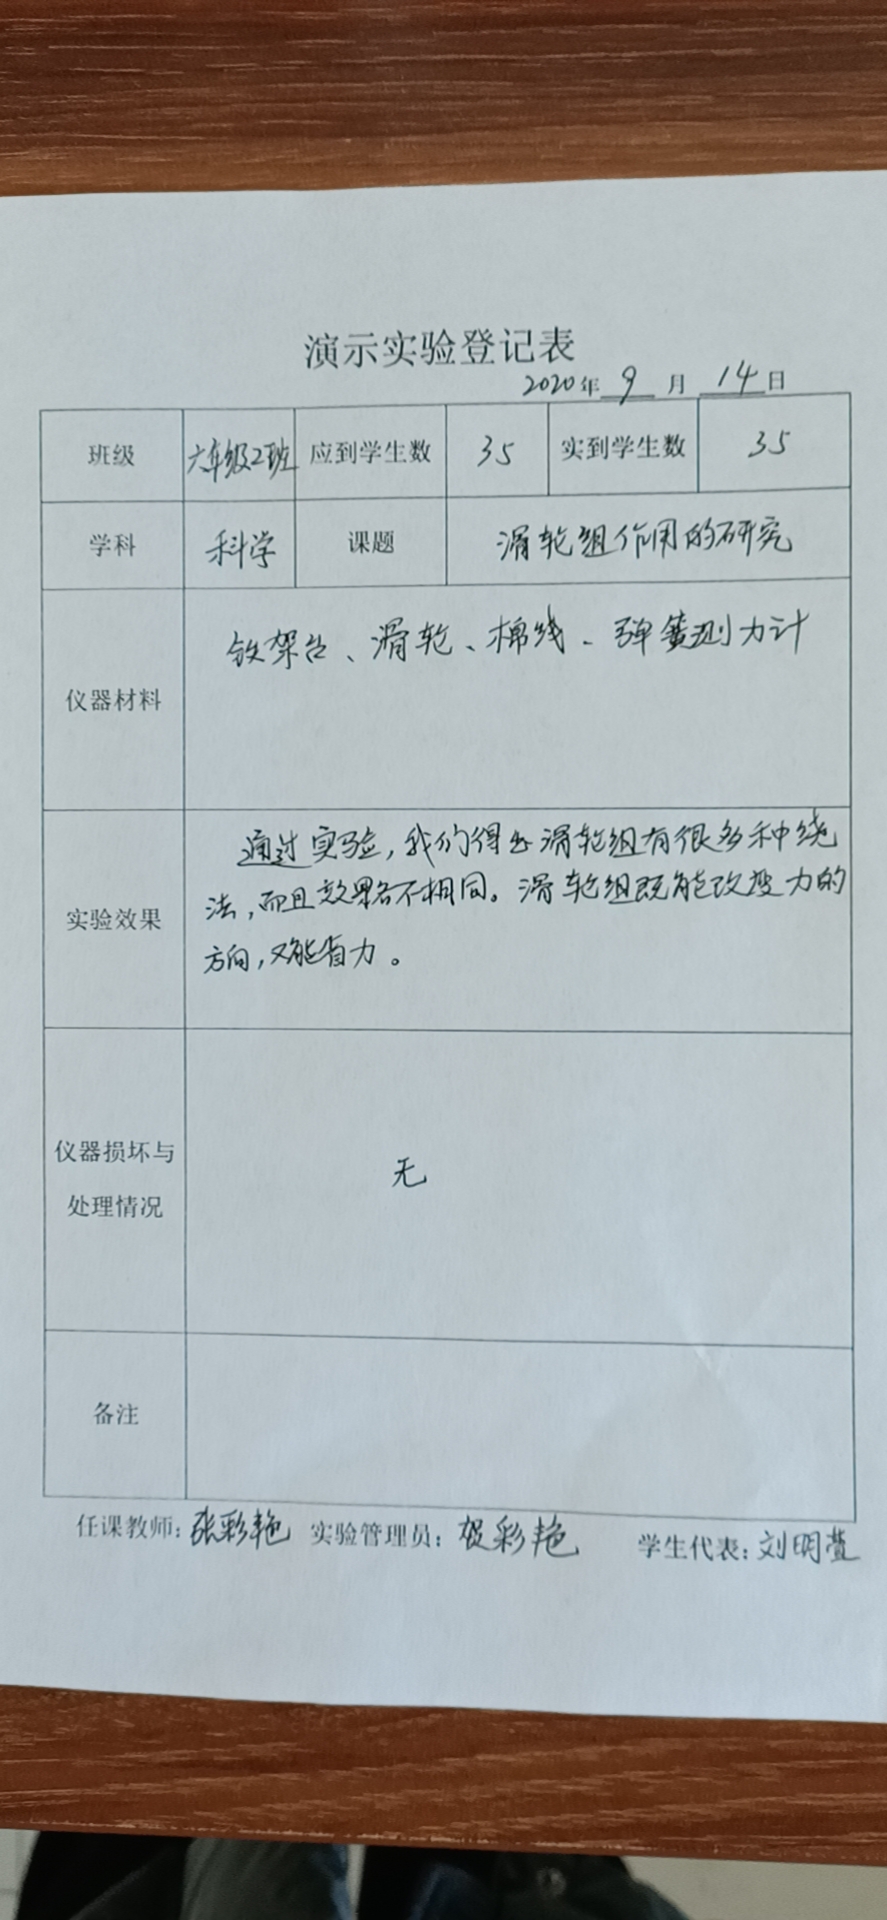 演示实验登记表
2020年 9 月 14 日
班级 六年级2班 应到学生数 35 实到学生数 35
学科 科学 课题 滑轮组作用的研究
仪器材料 铁架台、滑轮、棉线、弹簧测力计
实验效果
通过实验,我们得出滑轮组有很多种绕
法,而且效果各不相同。滑轮组既能改变力的
方向,又能省力。
仪器损坏与
处理情况
无
备注
任课教师:张彩艳 实验管理员:贺彩艳 学生代表:刘明萱